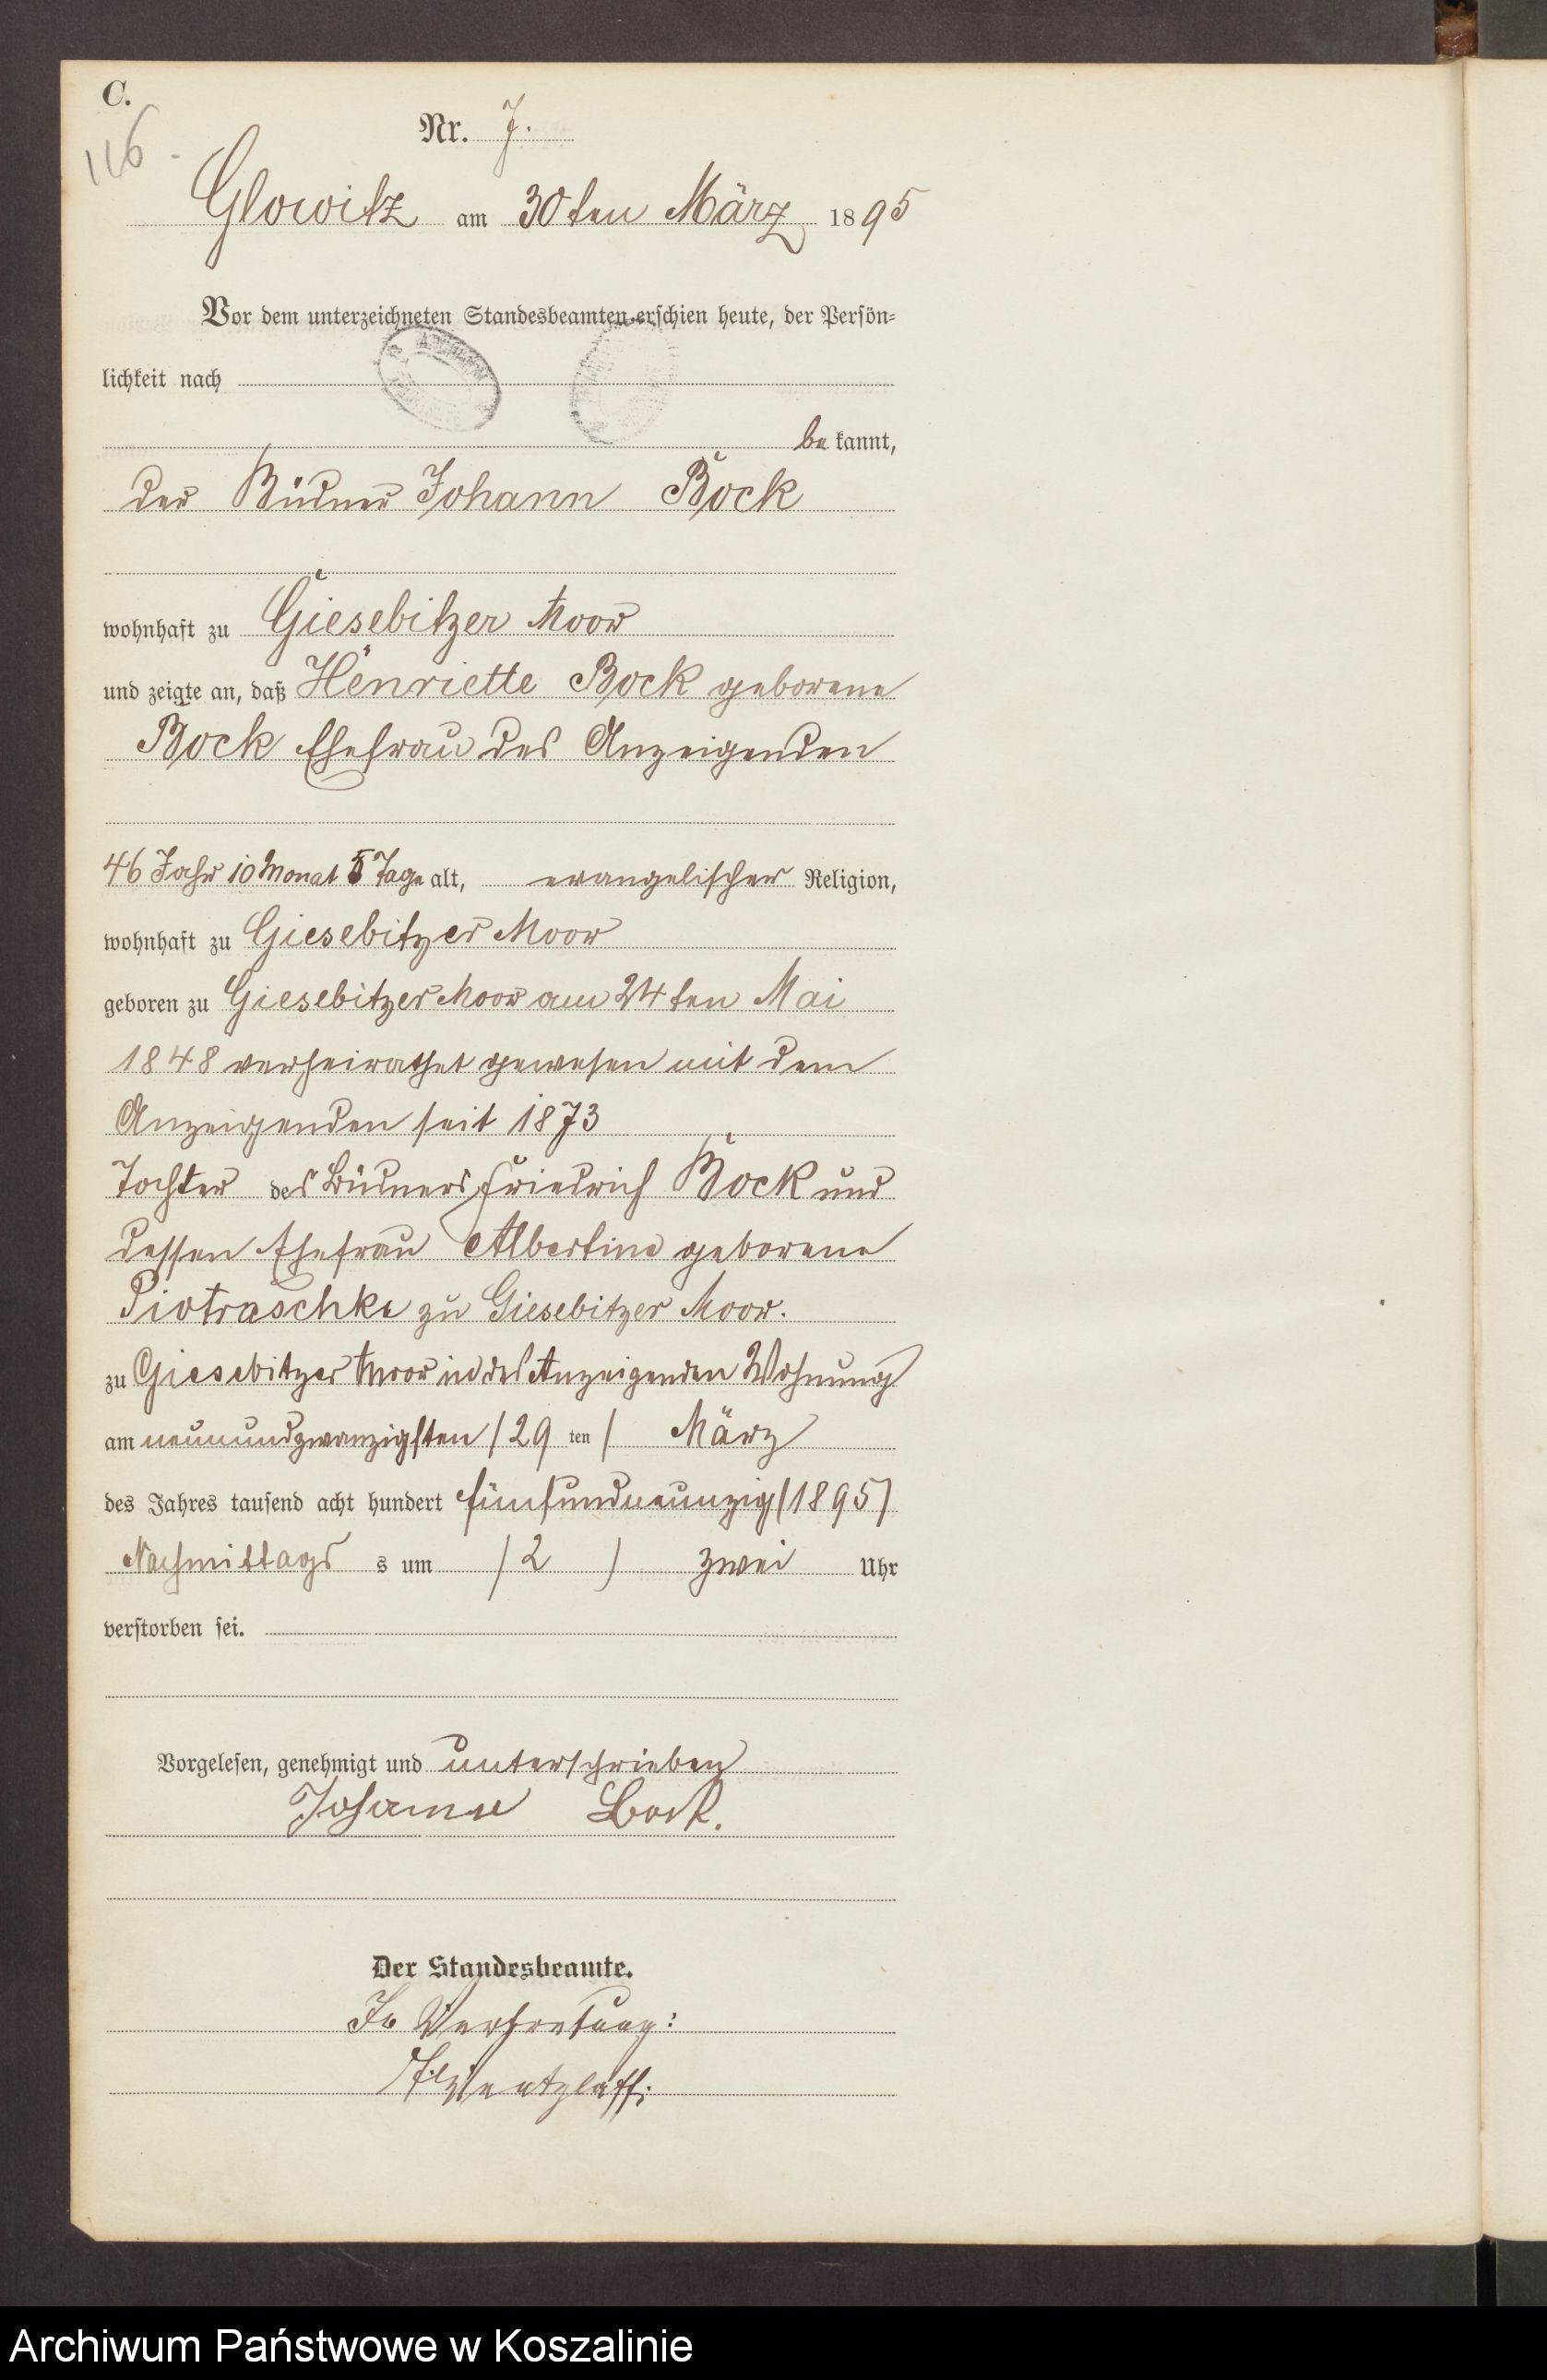 C.
116.
Nr. 7.
Glowitz am 30ten März 1895
Vor dem unterzeichneten Standesbeamten erschien heute, der Persön-
lichkeit nach
bekannt,
der Büdner Johann Bock
wohnhaft zu Giesebitzer Moor
und zeigte an, daß Henriette Bock geborene
Bock Ehefrau des Anzeigenden
46 Jahr 10 Monat 5 Tage alt, evangelischer Religion,
wohnhaft zu Giesebitzer Moor
geboren zu Giesebitzer Moor am 24ten Mai
1848 verheirathet gewesen mit dem
Anzeigenden seit 1873
Tochter des Büdners Friedrich Bock und
dessen Ehefrau Albertine geborene
Piotraschke zu Giesebitzer Moor.
zu Giesebitzer Moor in des Anzeigenden Wohnung
am neunundzwanzigsten /29 ten/ März
des Jahres tausend acht hundert fünfundneunzig (1895)
Nachmittags s um /2 / zwei Uhr
verstorben sei.
Vorgelesen, genehmigt und unterschrieben
Johann Bock.
Der Standesbeamte.
In Vertretung:
Wentzlaff.
Archiwum Państwowe w Koszalinie